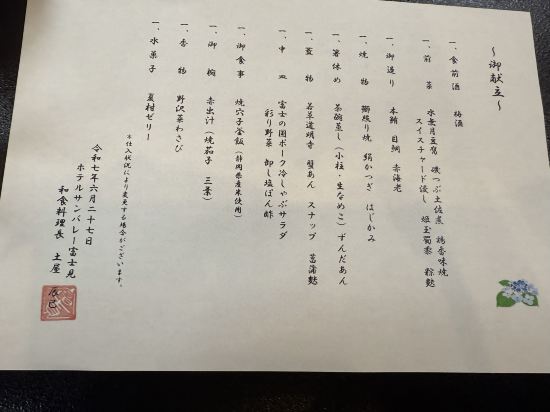 ～御献立～
一、食前酒　梅酒
一、前菜　水無月豆腐　磯つぶ土佐煮　鱧香味焼
スイスチャード浸し　姫玉蜀黍　粽麩
一、御造り　本鮪　目鯛　赤海老
一、焼物　鰤照り焼　絹かつぎ　はじかみ
一、箸休め　茶碗蒸し（小柱・生なめこ）ずんだあん
一、蓋物　若草道明寺　蟹あん　スナップ　菖蒲麩
一、中皿　富士の国ポーク冷しゃぶサラダ
彩り野菜　卸し塩ぽん酢
一、御食事　焼穴子釜飯（静岡県産米使用）
一、御椀　赤出汁（焼茄子　三葉）
一、香物　野沢菜わさび
一、水菓子　夏柑ゼリー
※仕入状況により変更する場合がございます。
令和七年六月二十七日
ホテルサンバレー富士見
和食料理長　土屋　辰巳